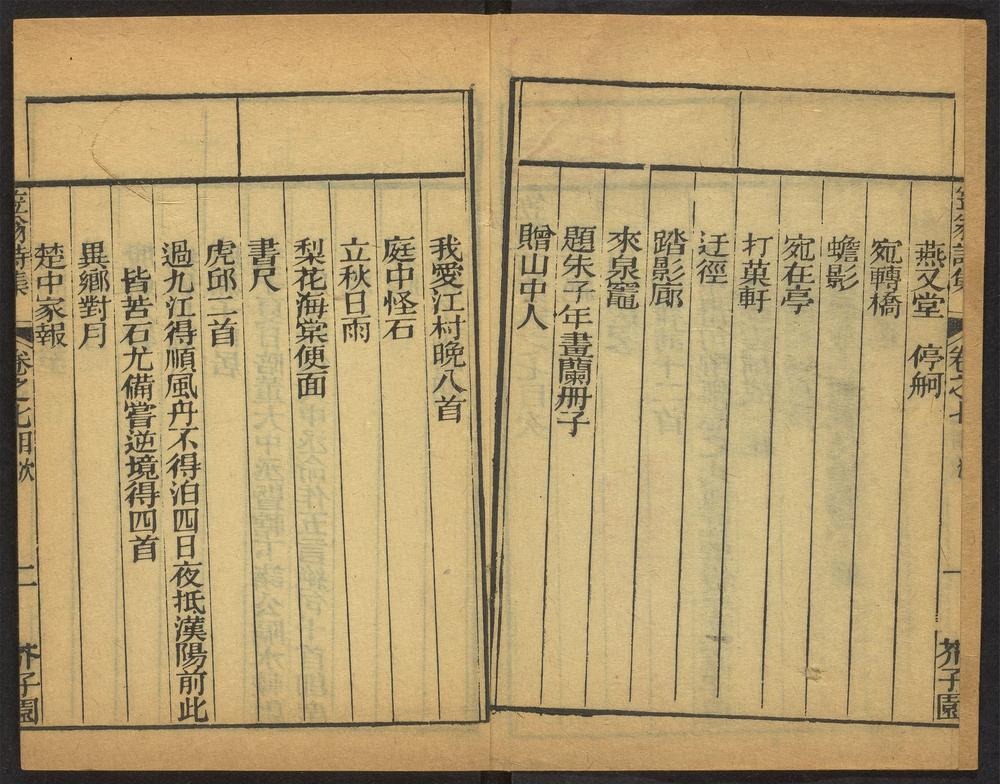 笠翁詩集 卷之七目次 一 芥子園
燕又堂 停舸
宛轉橋
蟾影
宛在亭
打菓軒
迂徑
踏影廊
來泉竈
題朱子年畫蘭冊子
贈山中人
我愛江村晚八首
庭中怪石
立秋日雨
梨花海棠便面
書尺
虎邱二首
過九江得順風舟不得泊四日夜抵漢陽前此
皆苦石尤備嘗逆境得四首
異鄉對月
楚中家報
笠翁詩集 卷之七目次 二 芥子園